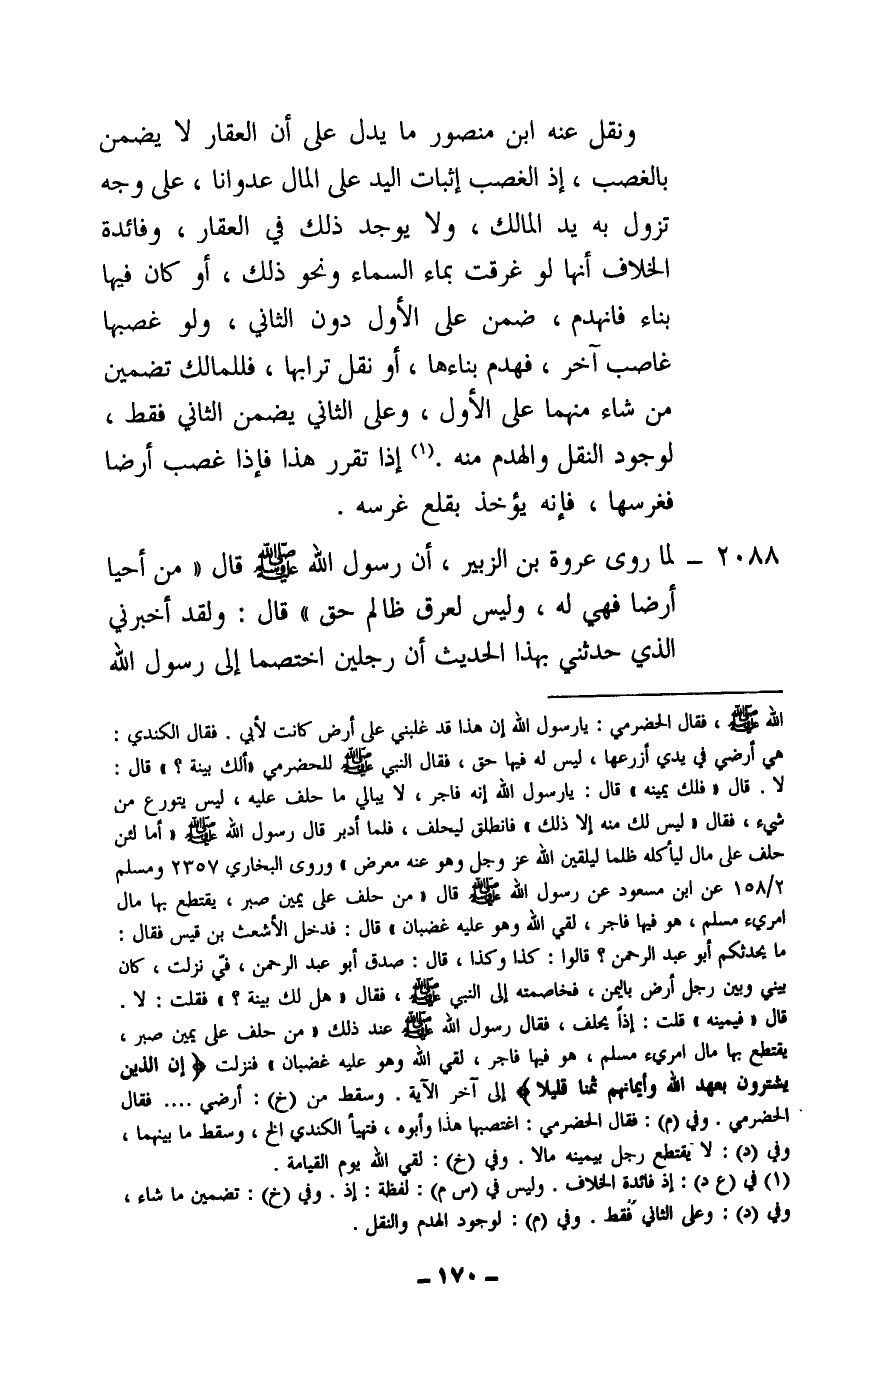 ونقل عنه ابن منصور ما يدل على أن العقار لا يضمن
بالغصب ، إذ الغصب إثبات اليد على المال عدوانا ، على وجه
تزول به يد المالك ، ولا يوجد ذلك في العقار ، وفائدة
الخلاف أنها لو غرقت بماء السماء ونحو ذلك ، أو كان فيها
بناء فانهدم ، ضمن على الأول دون الثاني ، ولو غصبها
غاصب آخر ، فهدم بناءها ، أو نقل ترابها ، فللمالك تضمين
من شاء منهما على الأول ، وعلى الثاني يضمن الثاني فقط ،
لوجود النقل والهدم منه .(١) إذا تقرر هذا فإذا غصب أرضا
فغرسها ، فإنه يؤخذ بقلع غرسه .
٢٠٨٨ – لما روى عروة بن الزبير ، أن رسول الله ﷺ قال « من أحيا
أرضا فهي له ، وليس لعرق ظالم حق » قال : ولقد أخبرني
الذي حدثني بهذا الحديث أن رجلين اختصما إلى رسول الله
الله ﷺ ، فقال الحضرمي : يارسول الله إن هذا قد غلبني على أرض كانت لأبي . فقال الكندي :
هي أرضي في يدي أزرعها ، ليس له فيها حق ، فقال النبي ﷺ للحضرمي «ألك بينة ؟ » قال :
لا . قال « فلك يمينه » قال : يارسول الله إنه فاجر ، لا يبالي ما حلف عليه ، ليس يتورع من
شيء ، فقال « ليس لك منه إلا ذلك » فانطلق ليحلف ، فلما أدبر قال رسول الله ﷺ « أما لئن
حلف على مال ليأكله ظلما ليلقين الله عز وجل وهو عنه معرض » وروى البخاري ٢٣٥٧ ومسلم
١٥٨/٢ عن ابن مسعود عن رسول الله ﷺ قال « من حلف على يمين صبر ، يقتطع بها مال
امريء مسلم ، هو فيها فاجر ، لقي الله وهو عليه غضبان » قال : فدخل الأشعث بن قيس فقال :
ما يحدثكم أبو عبد الرحمن ؟ قالوا : كذا وكذا ، قال : صدق أبو عبد الرحمن ، فيّ نزلت ، كان
بيني وبين رجل أرض باليمن ، فخاصمته إلى النبي ﷺ ، فقال « هل لك بينة ؟ » فقلت : لا .
قال « فيمينه » قلت : إذاً يحلف ، فقال رسول الله ﷺ عند ذلك « من حلف على يمين صبر ،
يقتطع بها مال امريء مسلم ، هو فيها فاجر ، لقي الله وهو عليه غضبان » فنزلت ﴿ إن الذين
يشترون بعهد الله وأيمانهم ثمنا قليلا ﴾ إلى آخر الآية . وسقط من (خ) : أرضي .... فقال
الحضرمي . وفي (م) : فقال الحضرمي : اغتصبها هذا وأبوه ، فتهيأ الكندي الخ ، وسقط ما بينهما ،
وفي (د) : لا يقتطع رجل بيمينه مالا . وفي (خ) : لقي الله يوم القيامة .
(١) في (ع د) : إذ فائدة الخلاف . وليس في (س م) : لفظة : إذ . وفي (خ) : تضمين ما شاء ،
وفي (د) : وعلى الثاني فقط . وفي (م) : لوجود الهدم والنقل .
– ١٧٠ –